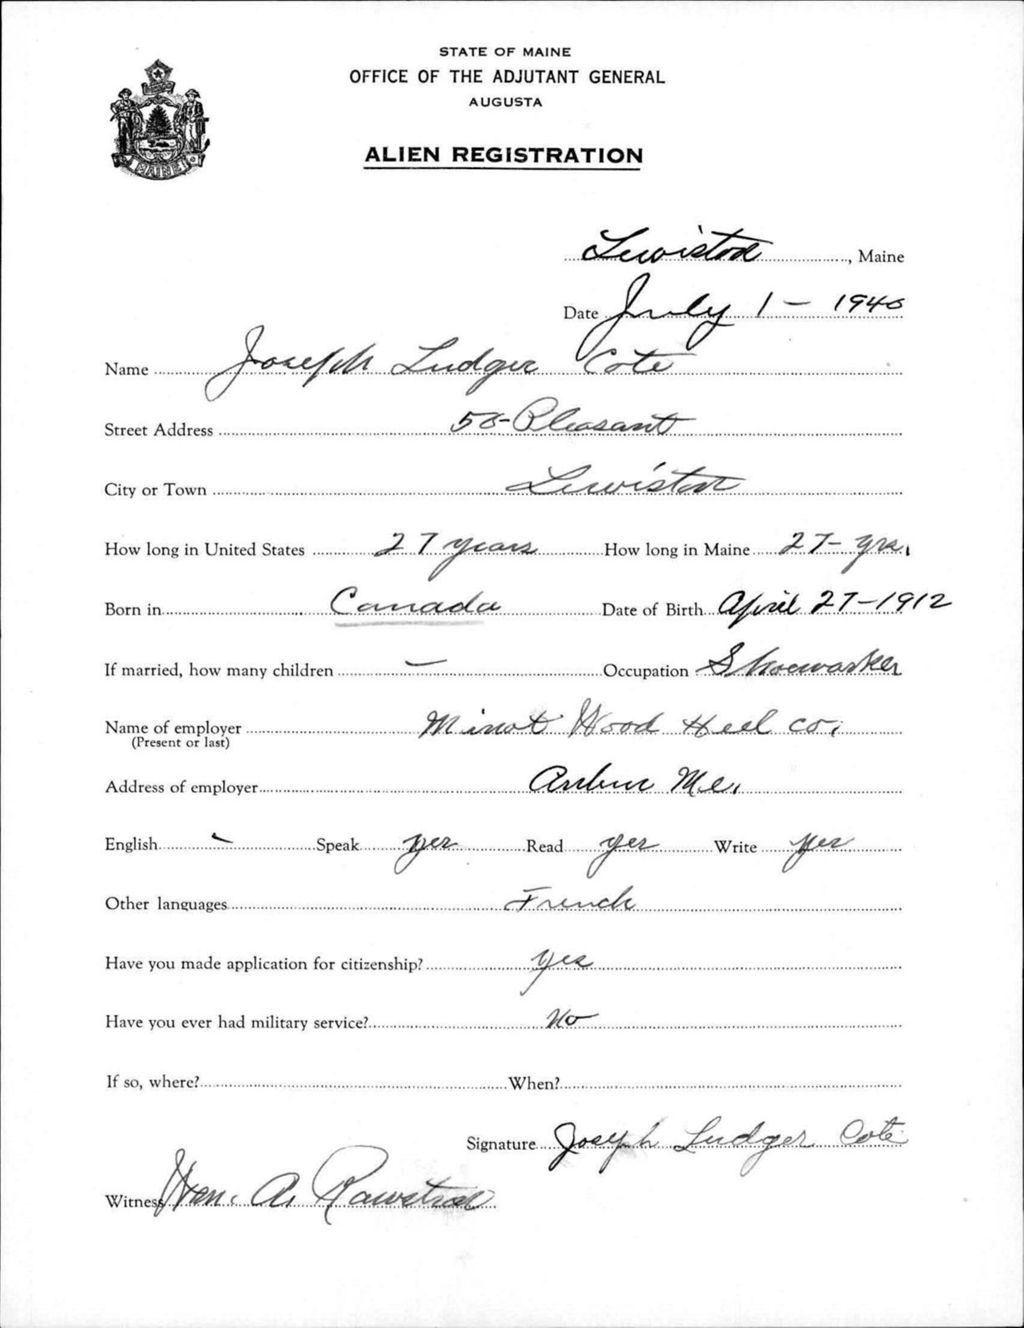 STATE OF MAINE
OFFICE OF THE ADJUTANT GENERAL
AUGUSTA
ALIEN REGISTRATION
MAINE
Lewiston, Maine
Date July 1 - 1940
Name Joseph Ludger Cote
Street Address Pleasant
City or Town Lewiston
How long in United States 27 years How long in Maine 27 - yrs.
Born in Canada Date of Birth April 27 - 1912
If married, how many children - Occupation Shoeworker
Name of employer Minot Wood Heel co.
(Present or last)
Address of employer Auburn Me.
English - Speak yes Read yes Write yes
Other languages French
Have you made application for citizenship? yes
Have you ever had military service? No
If so, where? When?
Signature Joseph Ludger Cote
Witness Wm. A.